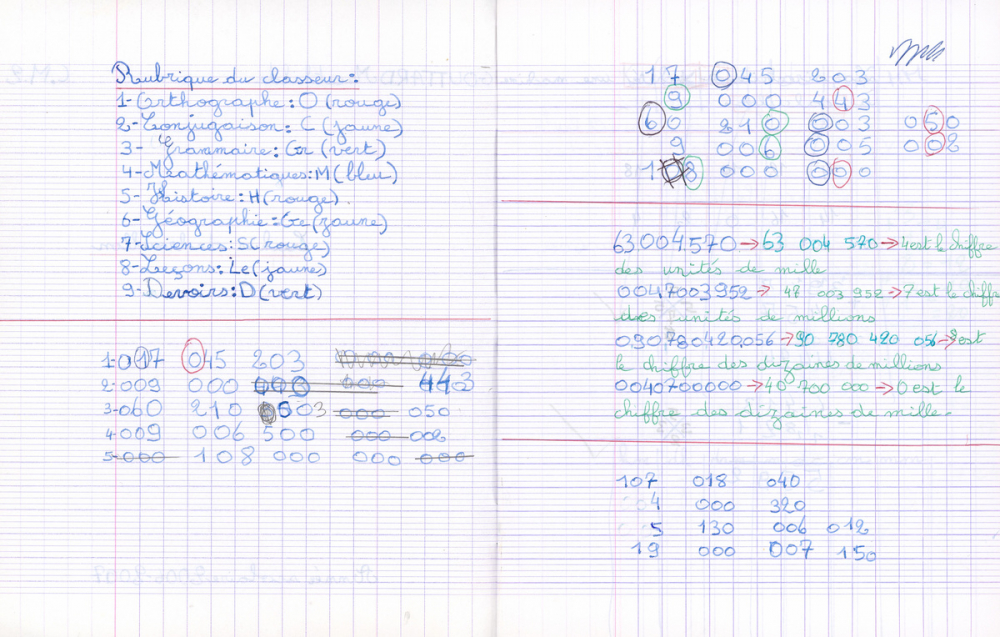 Rubrique du classeur:
1-Orthographe: O (rouge)
2-Conjugaison: C (jaune)
3- Grammaire: Gr (vert)
4-Mathématiques: M (bleu)
5- Histoire: H (rouge).
6-Géographie: Ge (jaune)
7-Sciences: S (rouge)
8-Leçons: Le (jaune)
9-Devoirs: D (vert)
1-017 045 203
2-009 000 000 000 443
3-060 210 003 000 050
4-009 006 500 000 002
5-000 108 000 000 000
17 045 203
9 000 443
60 210 003 050
9 006 005 002
18 000 000
63004570→63 004 570→4 est le chiffre
des unités de mille
0047003952→ 47 003 952→7 est le chiff
des unités de millions
090780420056→90 780 420 056→ est
le chiffre des dizaines de millions
0040700000→40 700 000→0 est le
chiffre des dizaines de mille.
107 018 040
4 000 320
5 130 006 012
19 000 007 150